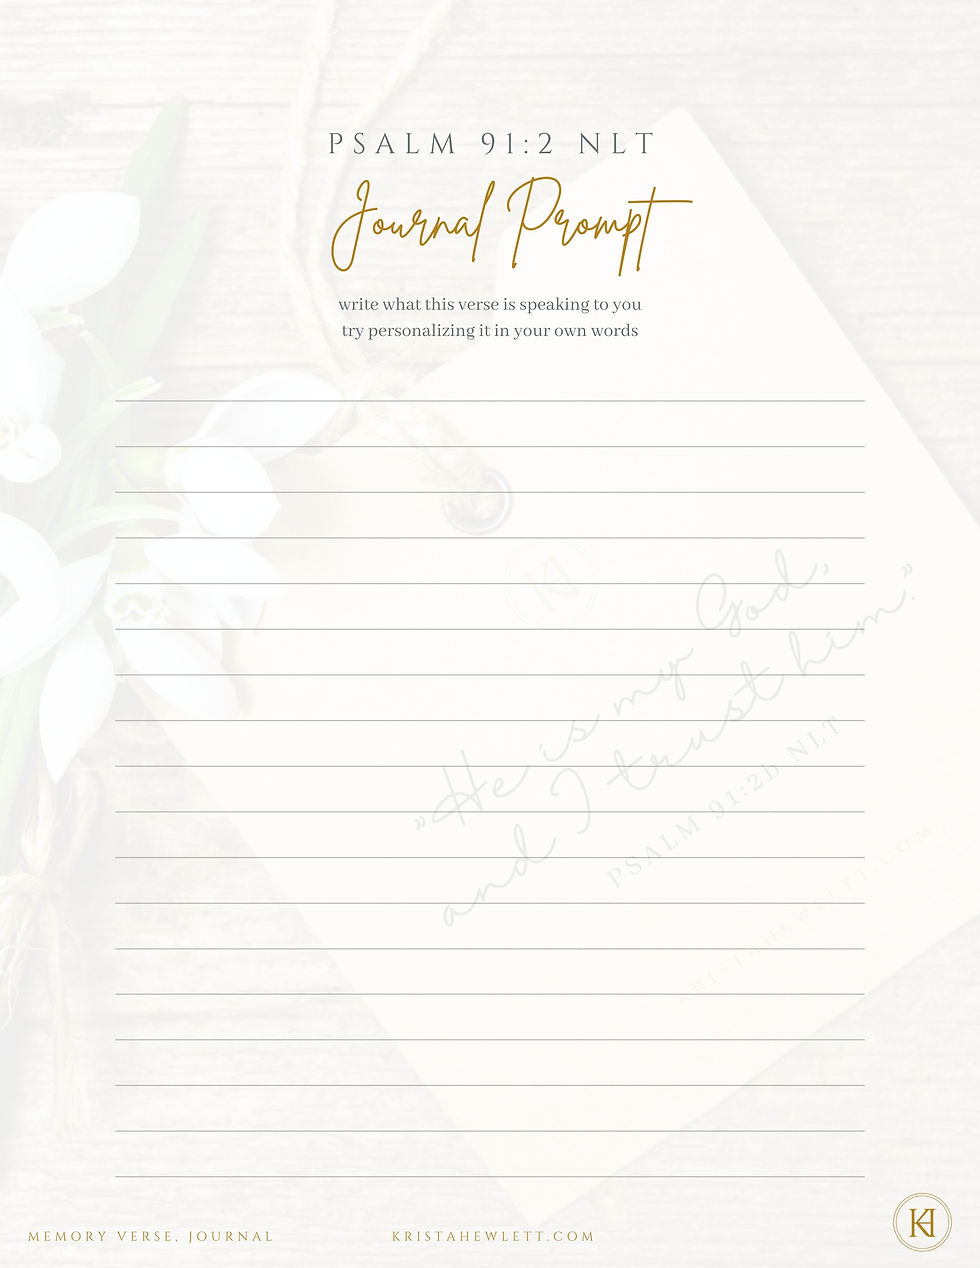 PSALM 91:2 NLT
Journal Prompt
write what this verse is speaking to you
try personalizing it in your own words
KH
"He is my God,
and I trust him."
PSALM 91:2b NLT
KRISTAHEWLETT.COM
MEMORY VERSE, JOURNAL
KRISTAHEWLETT.COM
KH